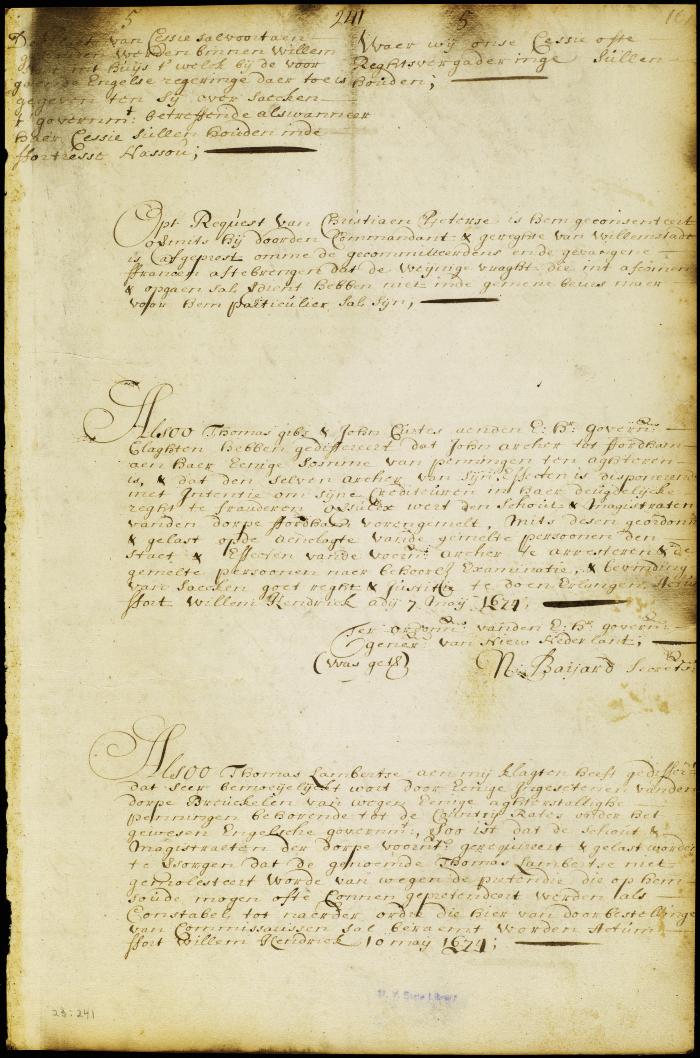 5 241 5
van Cessie sal voortaen
worden binnen Willem
huijs t' welck bij de voor
Engelse regeringe daer toe is
gegeven ten sij over saecken
t governmt: betreffende als wanneer
haer Cessie sullen houden inde
ffortresse Nassou;
Waer wij onse Cessie ofte
Reghtsvergaderinge sullen
houden;
Opt Request van Christiaen Pieterse is hem geconsenteert
vermits hij door den Commandant & gereghte van Willemstadt
is afgeprest omme de gecommitteerdens ende gevangene
ffrancen af te brengen dat de weynige vraght die int afcomen
& opgaen sal verdient hebben niet inde gemene beurs maer
voor hem particulier sal sijn;
Alsoo Thomas gibs & John Curtes aenden E: Hr. Governr:
Claghten hebben gedifereert dat John archer tot ffordham
aen haer Eenige Somme van penningen ten aghteren
is, & dat den selven archer van sijn Effecten is disponerende
met Intentie om sijne Crediteuren in haer deugdelijcke
reght te frauderen, Soo wert den Schout & Magistraten
vanden dorpe ffordham vorengemelt, Mits desen geordonr
& gelast op de aenclagte vande gemelte persoonen den
Staet & Effecten vande voorn: archer te arresteren & de
gemelte persoonen naer behoorl: Examinatie, & bevinding
van Saecken goet reght & Justitie te doen Erlangen, Actum
ffort Willem Hendrick adij 7 May 1674;
Ter ordonn: vanden E: Hr. governr:
gener: van Niew Nederlant;
(was get:) N: Baijard Secrets:
Alsoo Thomas Lambertse aen mij klagten heeft gedifferr:
dat seer bemoeijelijckt wort door Eenige Ingesetenen vanden
dorpe Breuckelen van wegen Eenige aghterstallighe
penningen behorende tot de Country Rates onder het
gewesen Engelsche governmt:, Soo ist dat de Schout &
Magistraeten der dorpe voornt: gerequireert & gelast worden
te Sorgen dat de genoemde Thomas Lambertse niet
gemolesteert worde van wegen de pretentie die op hem
soude mogen ofte Connen gepretendeert werden als
Constabel tot naerder ordre die hier van door bestellinge
van Commissarissen sal beraemt worden Actum
ffort Willem Hendrick 10 may 1674;
N. Y. State Library
23:241